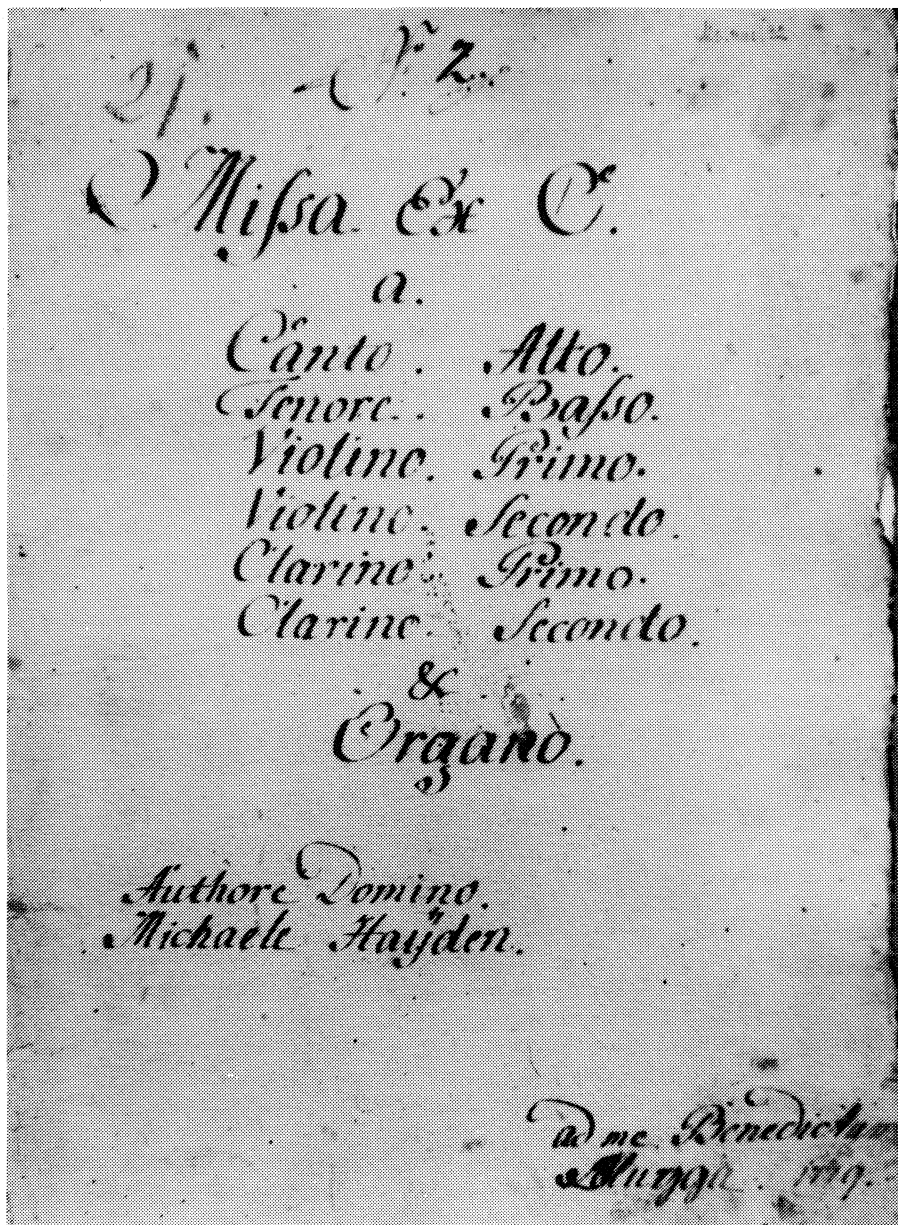 F. 2.
Missa Ex C.
a.
Canto. Alto.
Tenore. Basso.
Violino. Primo.
Violino. Secondo.
Clarino. Primo.
Clarino. Secondo.
&
Organo.
Authore Domino.
Michaele Hayden.
ad me Benedictam
1779.